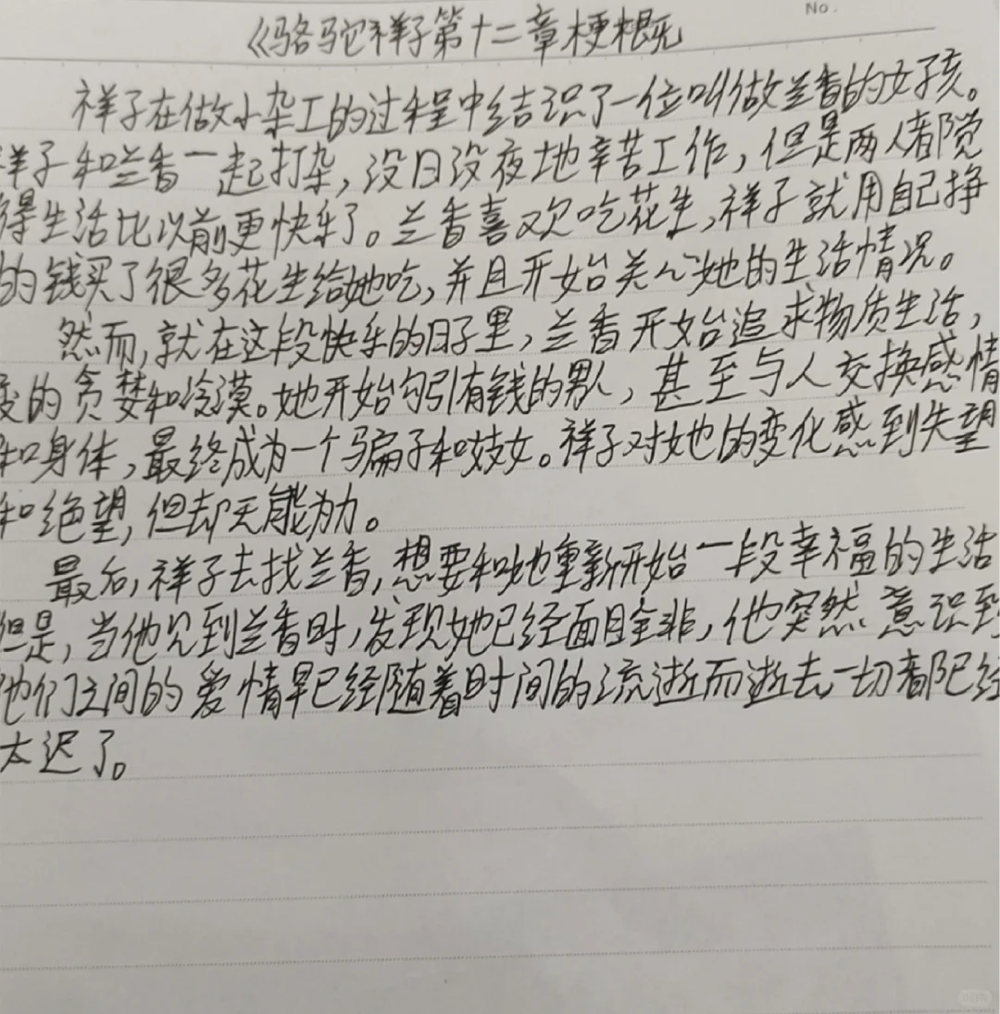 No.
《骆驼祥子第十二章梗概
祥子在做小杂工的过程中结识了一位叫做兰香的女孩。
祥子和兰香一起打杂，没日没夜地辛苦工作，但是两人都觉
得生活比以前更快乐了。兰香喜欢吃花生，祥子就用自己挣
的钱买了很多花生给她吃，并且开始关心她的生活情况。
然而，就在这段快乐的日子里，兰香开始追求物质生活，
变的贪婪和冷漠。她开始勾引有钱的男人，甚至与人交换感情
和身体，最终成为一个骗子和妓女。祥子对她的变化感到失望
和绝望，但却无能为力。
最后，祥子去找兰香，想要和她重新开始一段幸福的生活
但是，当他见到兰香时，发现她已经面目全非，他突然意识到
他们之间的爱情早已经随着时间的流逝而逝去一切都已经
太迟了。